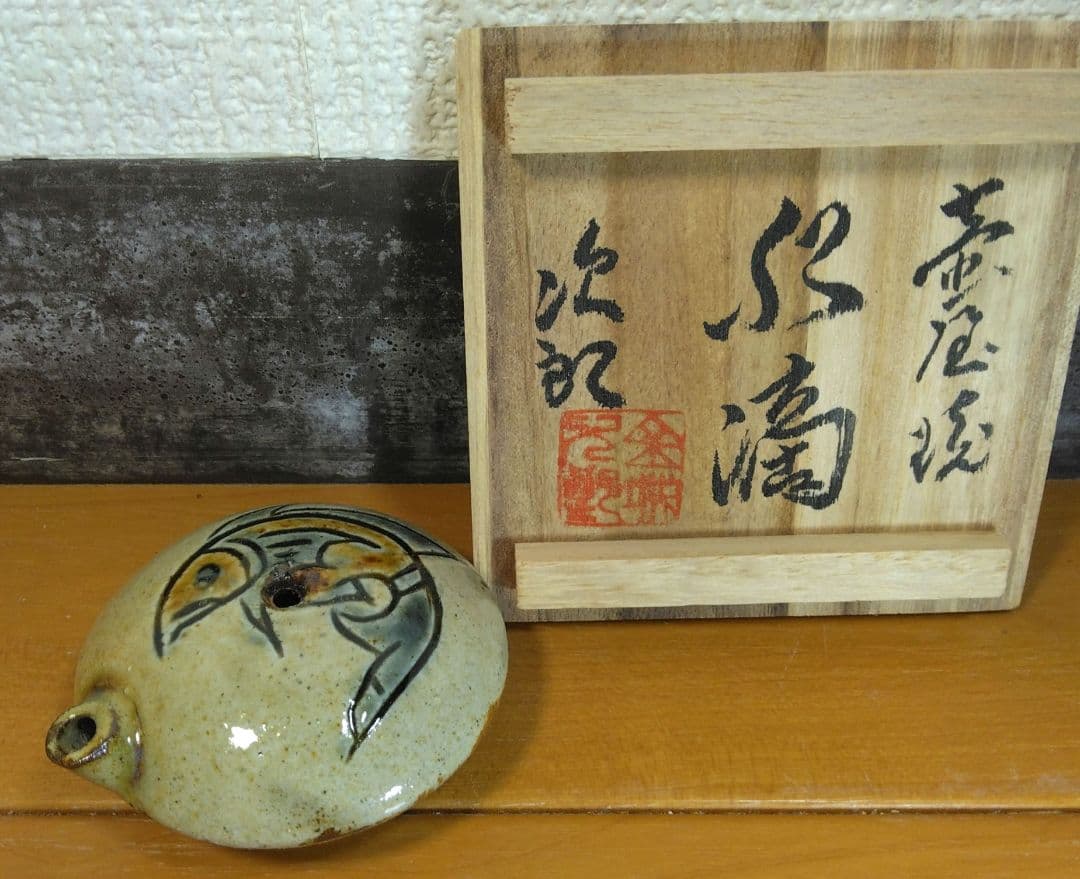 壷屋焼
水滴
次郎
金城
次郎